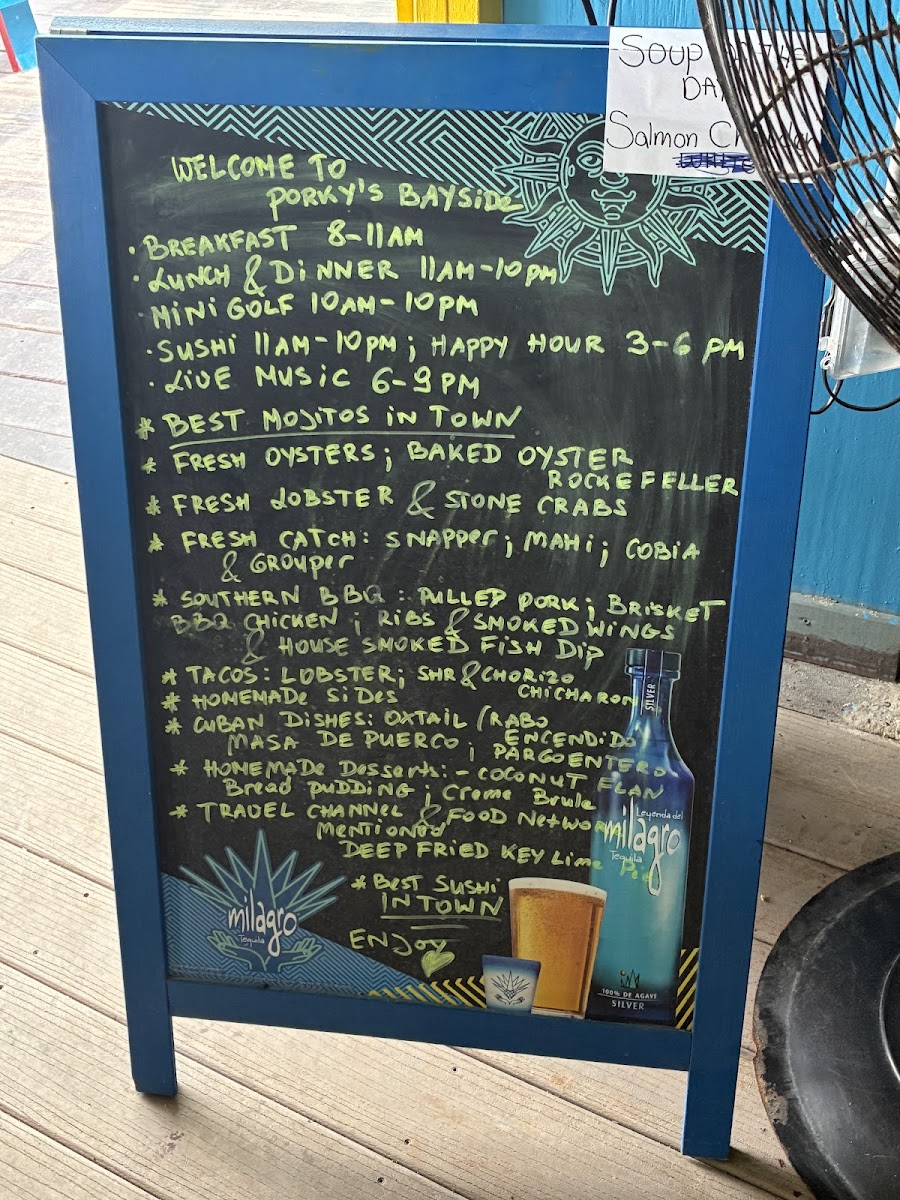 SOUP
DAY
Salmon Chowder
WELCOME TO
PORKY'S BAYSIDE
· BREAKFAST 8-11AM
· LUNCH & DINNER 11AM-10PM
· MINI GOLF 10AM-10PM
· SUSHI 11AM-10PM; HAPPY HOUR 3-6 PM
· LIVE MUSIC 6-9 PM
* BEST MOJITOS IN TOWN
* FRESH OYSTERS; BAKED OYSTER
ROCKEFELLER
* FRESH LOBSTER & STONE CRABS
* FRESH CATCH: SNAPPER; MAHI; COBIA
& GROUPER
* SOUTHERN BBQ: PULLED PORK; BRISKET
BBQ CHICKEN; RIBS & SMOKED WINGS
& HOUSE SMOKED FISH DIP
* TACOS: LOBSTER; SHR & CHORIZO
CHICHARON
* HOMEMADE SIDES
* CUBAN DISHES: OXTAIL /RABO
ENCENDIDO
MASA DE PUERCO; PARGO ENTERO
* HOMEMADE Desserts: - COCONUT FLAN
Bread PUDDING; Creme Brule
* TRAVEL CHANNEL & FOOD NETWORK
MENTIONED
DEEP FRIED KEY Lime Pie
* BEST SUSHI
IN TOWN
ENJOY
SILVER
Leyenda del
milagro
Tequila
milagro
Tequila
100% DE AGAVE
SILVER